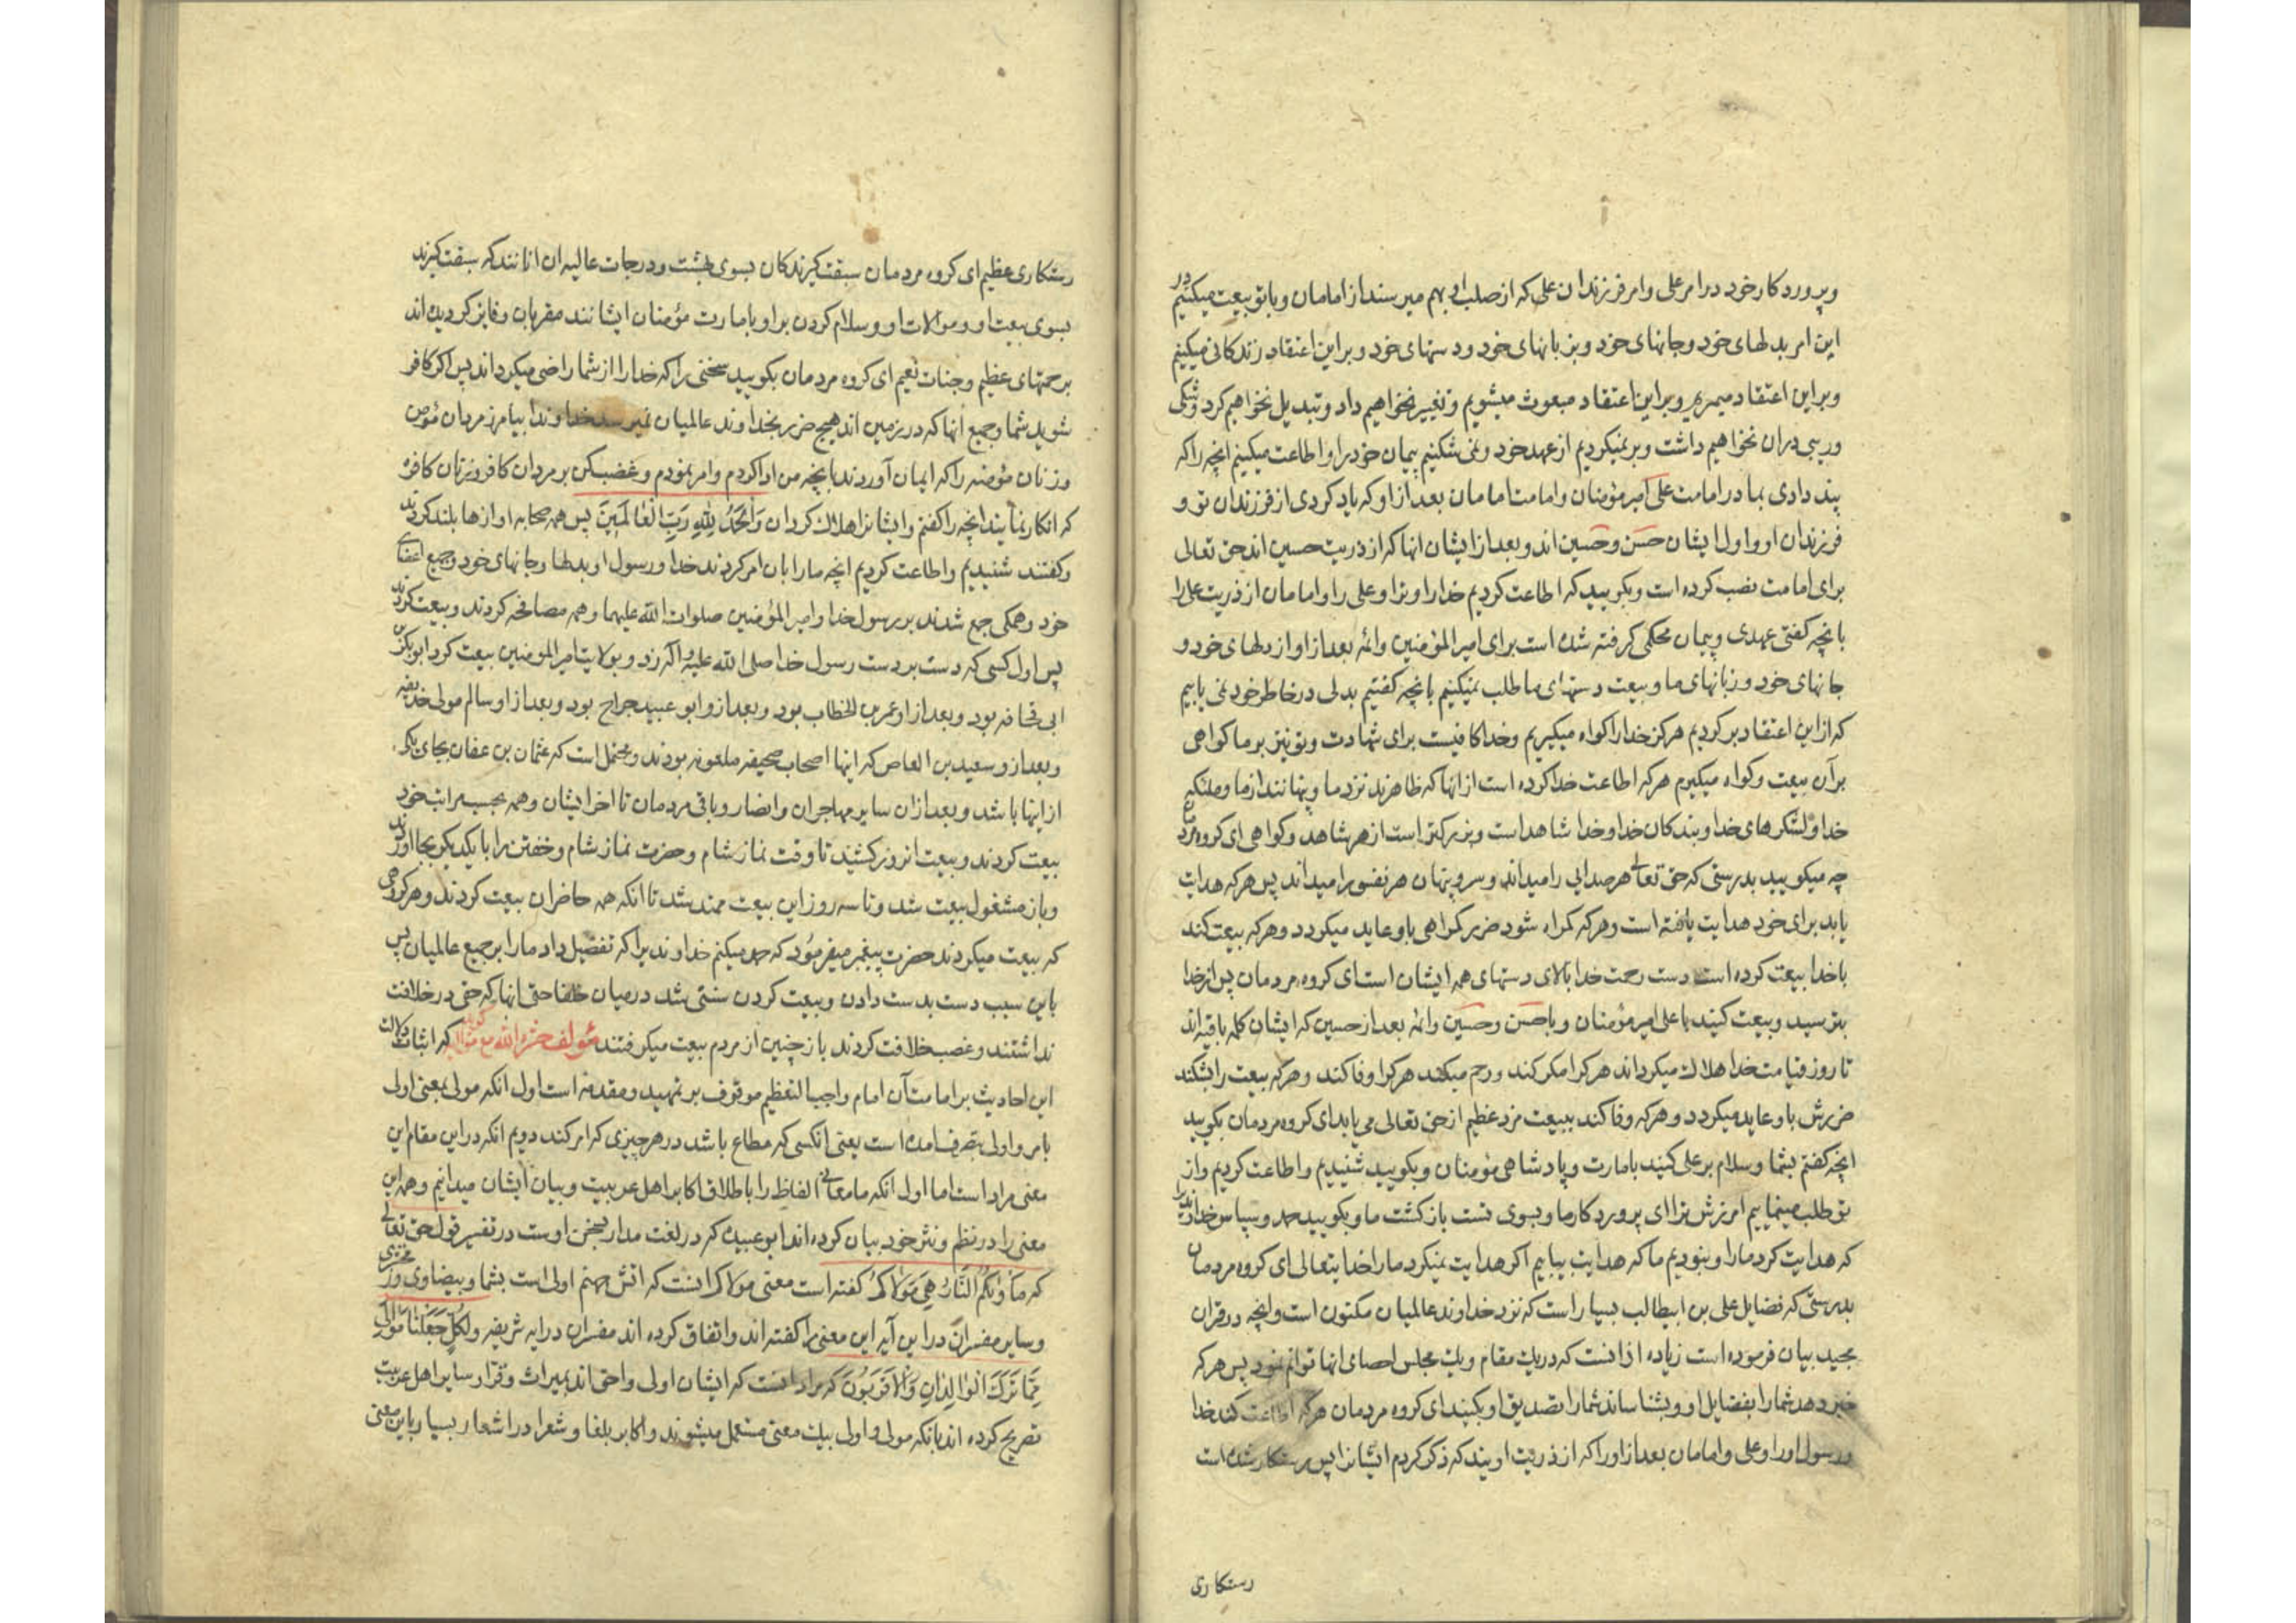 و پروردکار خود در امر علی و امر فرزندان علی که از صلب او بهم میرسند از امامان و با تو بیعت میکنیم در
این امر بدلهای خود و جانهای خود و بزبانهای خود و دستهای خود و براین اعتقاد زندکانی میکنیم
و براین اعتقاد میمیریم و براین اعتقاد مبعوث میشویم و تغییر نخواهیم داد و تبدیل نخواهیم کرد و شکی
و ریبی دران نخواهیم داشت و برنمیکردیم از عهد خود و نمی شکنیم پیمان خود را و اطاعت میکنیم انچه را که
پند دادی بما در امامت علی امیر مؤمنان و امامت امامان بعد از او که یاد کردی از فرزندان تو و
فرزندان او و اول ایشان حسن و حسین اند و بعد از ایشان انها که از ذریت حسین اند حق تعالی
برای امامت نصب کرده است و بکویید که اطاعت کردیم خدا را و ترا و علی را و امامان از ذریت علی را
بانچه کفتی عهدی و پیمان محکمی کرفته شده است برای امیر المؤمنین و ائمه بعد از او از دلهای خود و
جانهای خود و زبانهای ما و بیعت دستهای ما طلب نمیکنیم بانچه کفتیم بدلی در خاطر خود نمی یابیم
که از این اعتقاد برکردیم هرکز خدا را کواه میکیریم و خدا کافیست برای شهادت و تو نیز بر ما کواهی
برآن بیعت و کواه میکیرم هرکه اطاعت خدا کرده است از انها که ظاهرند نزد ما و پنهانند از ما و ملئکه
خدا و لشکرهای خدا و بندکان خدا و خدا شاهد است و بزرکتر است از هر شاهد و کواهی ای کروه مردمان
چه میکویید بدرستی که حق تعالی هر صدایی را میداند و سر و پنهان هر نفسی را میداند پس هرکه هدایت
یابد برای خود هدایت یافته است و هرکه کمراه شود ضرر کمراهی باو عاید میکردد و هرکه بیعت کند
با خدا بیعت کرده است دست رحمت خدا بالای دستهای همه ایشان است ای کروه مردمان پس از خدا
بترسید و بیعت کنید با علی امیر مؤمنان و با حسن و حسین و ائمه بعد از حسین که ایشان کلمه باقیه اند
تا روز قیامت خدا هلاک میکرداند هرکرا مکر کند و رحم میکند هرکرا وفا کند و هرکه بیعت را بشکند
ضررش باو عاید میکردد و هرکه وفا کند ببیعت مزد عظیم از حق تعالی می یابد ای کروه مردمان بکویید
انچه کفتم بشما و سلام بر علی کنید بامارت و پادشاهی مؤمنان و بکویید شنیدیم و اطاعت کردیم و از
تو طلب مینماییم امرزش ترا ای پروردکار ما و بسوی تست بازکشت ما و بکویید حمد و سپاس خداوندیرا
که هدایت کرد ما را و نبودیم ما که هدایت بیابیم اکر هدایت نمیکرد ما را خدایتعالی ای کروه مردمان
بدرستی که فضایل علی بن ابیطالب بسیار است که نزد خداوند عالمیان مکتون است و انچه در قران
مجید بیان فرموده است زیاده از انست که در یک مقام و یک مجلس احصای انها توانم نمود پس هرکه
خبر دهد شما را بفضایل او و بشناساند شما را تصدیق او بکنید ای کروه مردمان هرکه اطاعت کند خدا
و رسول او را و علی و امامان بعد از او را که از ذریت اویند که ذکر کردم ایشانرا پس رستکار شده است
رستکاری
رستکاری عظیم ای کروه مردمان سبقت کیرندکان بسوی بهشت و درجات عالیه ان انانند که سبقت کیرند
بسوی بیعت او و موالات او و سلام کردن بر او بامارت مؤمنان ایشانند مقربان و فایز کردیده اند
برحمتهای عظیم و جنات نعیم ای کروه مردمان بکویید سخنی را که خدا را از شما راضی میکرداند پس اکر کافر
شوید شما و جمیع انها که در زمین اند هیچ ضرر بخداوند عالمیان نمیرسد خداوندا بیامرز مردان مؤمن
و زنان مؤمنه را که ایمان آوردند بانچه من ادا کردم و امر نمودم و غضب کن بر مردان کافر و زنان کافره
که انکار نمایند انچه را کفتم و ایشانرا هلاک کردان وَالْحَمْدُ لِلّٰهِ رَبِّ الْعَالَمِينَ پس همه صحابه اوازها بلند کردند
و کفتند شنیدیم و اطاعت کردیم انچه ما را بان امر کردند خدا و رسول او بدلها و جانهای خود و جمیع اعضای
خود و همکی جمع شدند بر رسول خدا و امیر المؤمنین صلوات الله علیهما و همه مصافحه کردند و بیعت کردند
پس اول کسی که دست بر دست رسول خدا صلی الله علیه و آله زد و بولایت امیر المومنین بیعت کرد ابوبکر بن
ابی قحافه بود و بعد از او عمر بن الخطاب بود و بعد ازو ابو عبیده جراح بود و بعد از او سالم مولی حذیفه
و بعد ازو سعید بن العاص که اینها اصحاب صحیفه ملعونه بودند و محتمل است که عثمان بن عفان بجای یکی
از اینها باشد و بعد از ان سایر مهاجران و انصار و باقی مردمان تا اخر ایشان و همه بحسب مراتب خود
بیعت کردند و بیعت انروز کشید تا وقت نماز شام و حضرت نماز شام و خفتن را با یکدیکر بجا اوردند
و باز مشغول بیعت شد و تا سه روز این بیعت ممتد شد تا انکه همه حاضران بیعت کردند و هر کروهی
که بیعت میکردند حضرت پیغمبر میفرمود که حمد میکنم خداوندیرا که تفضیل داد ما را بر جمیع عالمیان پس
باین سبب دست بدست دادن و بیعت کردن سنتی شد درمیان خلفا حتی انها که حقی در خلافت
نداشتند و غصب خلافت کردند باز چنین از مردم بیعت میکرفتند مؤلف حشره الله مع موالیه کوید که اثبات دلالت
این احادیث بر امامت آن امام واجب التعظیم موقوف بر تمهید دو مقدمه است اول انکه مولی بمعنی اولی
بامر و اولی بتصرف امده است یعنی انکسی که مطاع باشد در هر چیزی که امر کند دویم انکه در این مقام این
معنی مراد است اما اول انکه ما معانی الفاظ را باطلاق اکابر اهل عربیت و بیان ایشان میدانیم و همه این
معنی را در نظم و نثر خود بیان کرده اند ابو عبیده که در لغت مدار بسخن اوست در تفسیر قول حق تعالی
که مَأْوٰيكُمُ النَّارُ هِيَ مَوْلَاكُمْ کفته است معنی مولاکم انست که اتش جهنم اولی است بشما و بیضاوی و زمخشری
و سایر مفسران در این آیه این معنی را کفته اند و اتفاق کرده اند مفسران در ایه شریفه وَلِكُلٍّ جَعَلْنَا مَوَالِيَ
مِمَّا تَرَكَ الْوَالِدَانِ وَالْأَقْرَبُونَ که مراد انست که ایشان اولی و احق اند بمیراث و فرا و سایر اهل عربیت
تصریح کرده اند بانکه مولی و اولی بیک معنی مستعمل میشوند و اکابر بلغا و شعرا در اشعار بسیار باین معنی